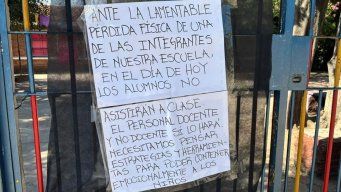 ANTE LA LAMENTABLE
PERDIDA FÍSICA DE UNA
DE LAS INTEGRANTES
DE NUESTRA ESCUELA,
EN EL DÍA DE HOY
LOS ALUMNOS NO
ASISTIRAN A CLASE
EL PERSONAL DOCENTE
Y NO DOCENTE SI LO HARÁ.
NECESITAMOS PENSAR
ESTRATEGIAS Y HERRAMIEN-
TAS PARA PODER CONTENER
EMOCIONALMENTE A LOS
NIÑOS